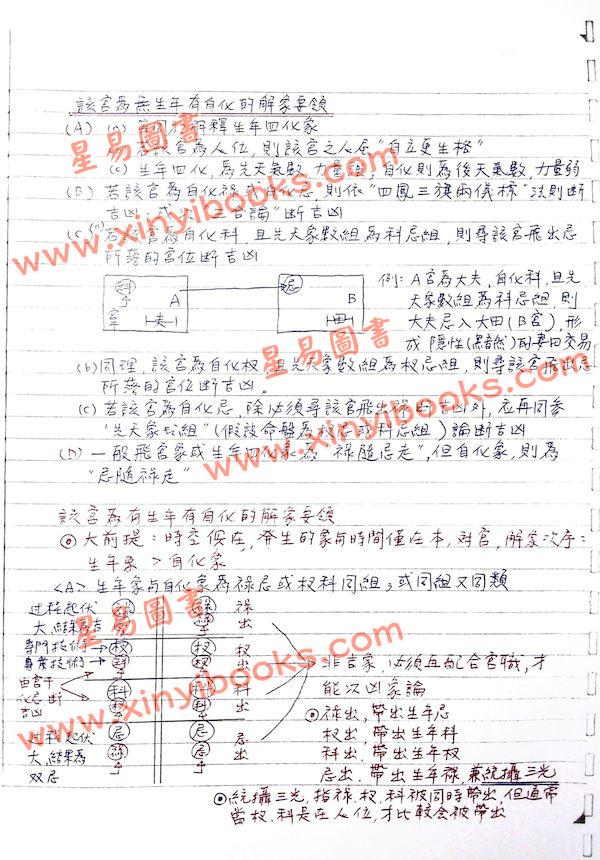 該宮為無生年有自化的解象要領
(A) (a) 解釋生年四化象
若該宮為人位,則該宮之人居"自立更生格"
(c) 生年四化,為先天氣數,力量強,自化則為後天氣數,力量弱
(B) 若該宮為自化祿或自化忌,則依"四鳳三旗兩儀標"法則斷
吉凶;或以"三合論"斷吉凶
(C) (a) 若該宮為自化科,且先天象數組為科忌組,則尋該宮飛出忌
所落的宮位斷吉凶
科 A 夫
忌 B 田
例:A宮為大夫,自化科,且先
天象數組為科忌組,則
大夫忌入大田(B宮),形
成隱性(黯然)的妻田交易
(b) 同理,該宮為自化權,且先天象數組為權忌組,則尋該宮飛出忌
所落的宮位斷吉凶。
(c) 若該宮為自化忌,除必須尋該宮飛出祿斷吉凶外,亦再同參
"先天象數組"(假設命盤為權忌或科忌組)論斷吉凶
(D) 一般飛宮象或生年四化象為"祿隨忌走",但自化象,則為
"忌隨祿走"
該宮為有生年有自化的解象要領
◎大前提:時空侷在,發生的象與時間僅在本,對宮,解象次序:
生年象>自化象
<A> 生年象與自化象為祿忌或權科同組;或同組又同類
过程起伏
大,結果為吉
專門技術
專業技術
由宮干
化忌斷
吉凶
过程起伏
大,結果為
双忌
祿出
權出
科出
忌出
非吉象,必須再配合宮職,才
能以凶象論
◎祿出,帶出生年忌
權出,帶出生年科
科出,帶出生年权
忌出,帶出生年祿,兼統攝三光
◎統攝三光,指祿、权、科被同時帶出,但通常
當权、科是在人位,才比較会被帶出
星易圖書
www.xinyibooks.com
星易圖書
www.xinyibooks.com
星易圖書
www.xinyibooks.com